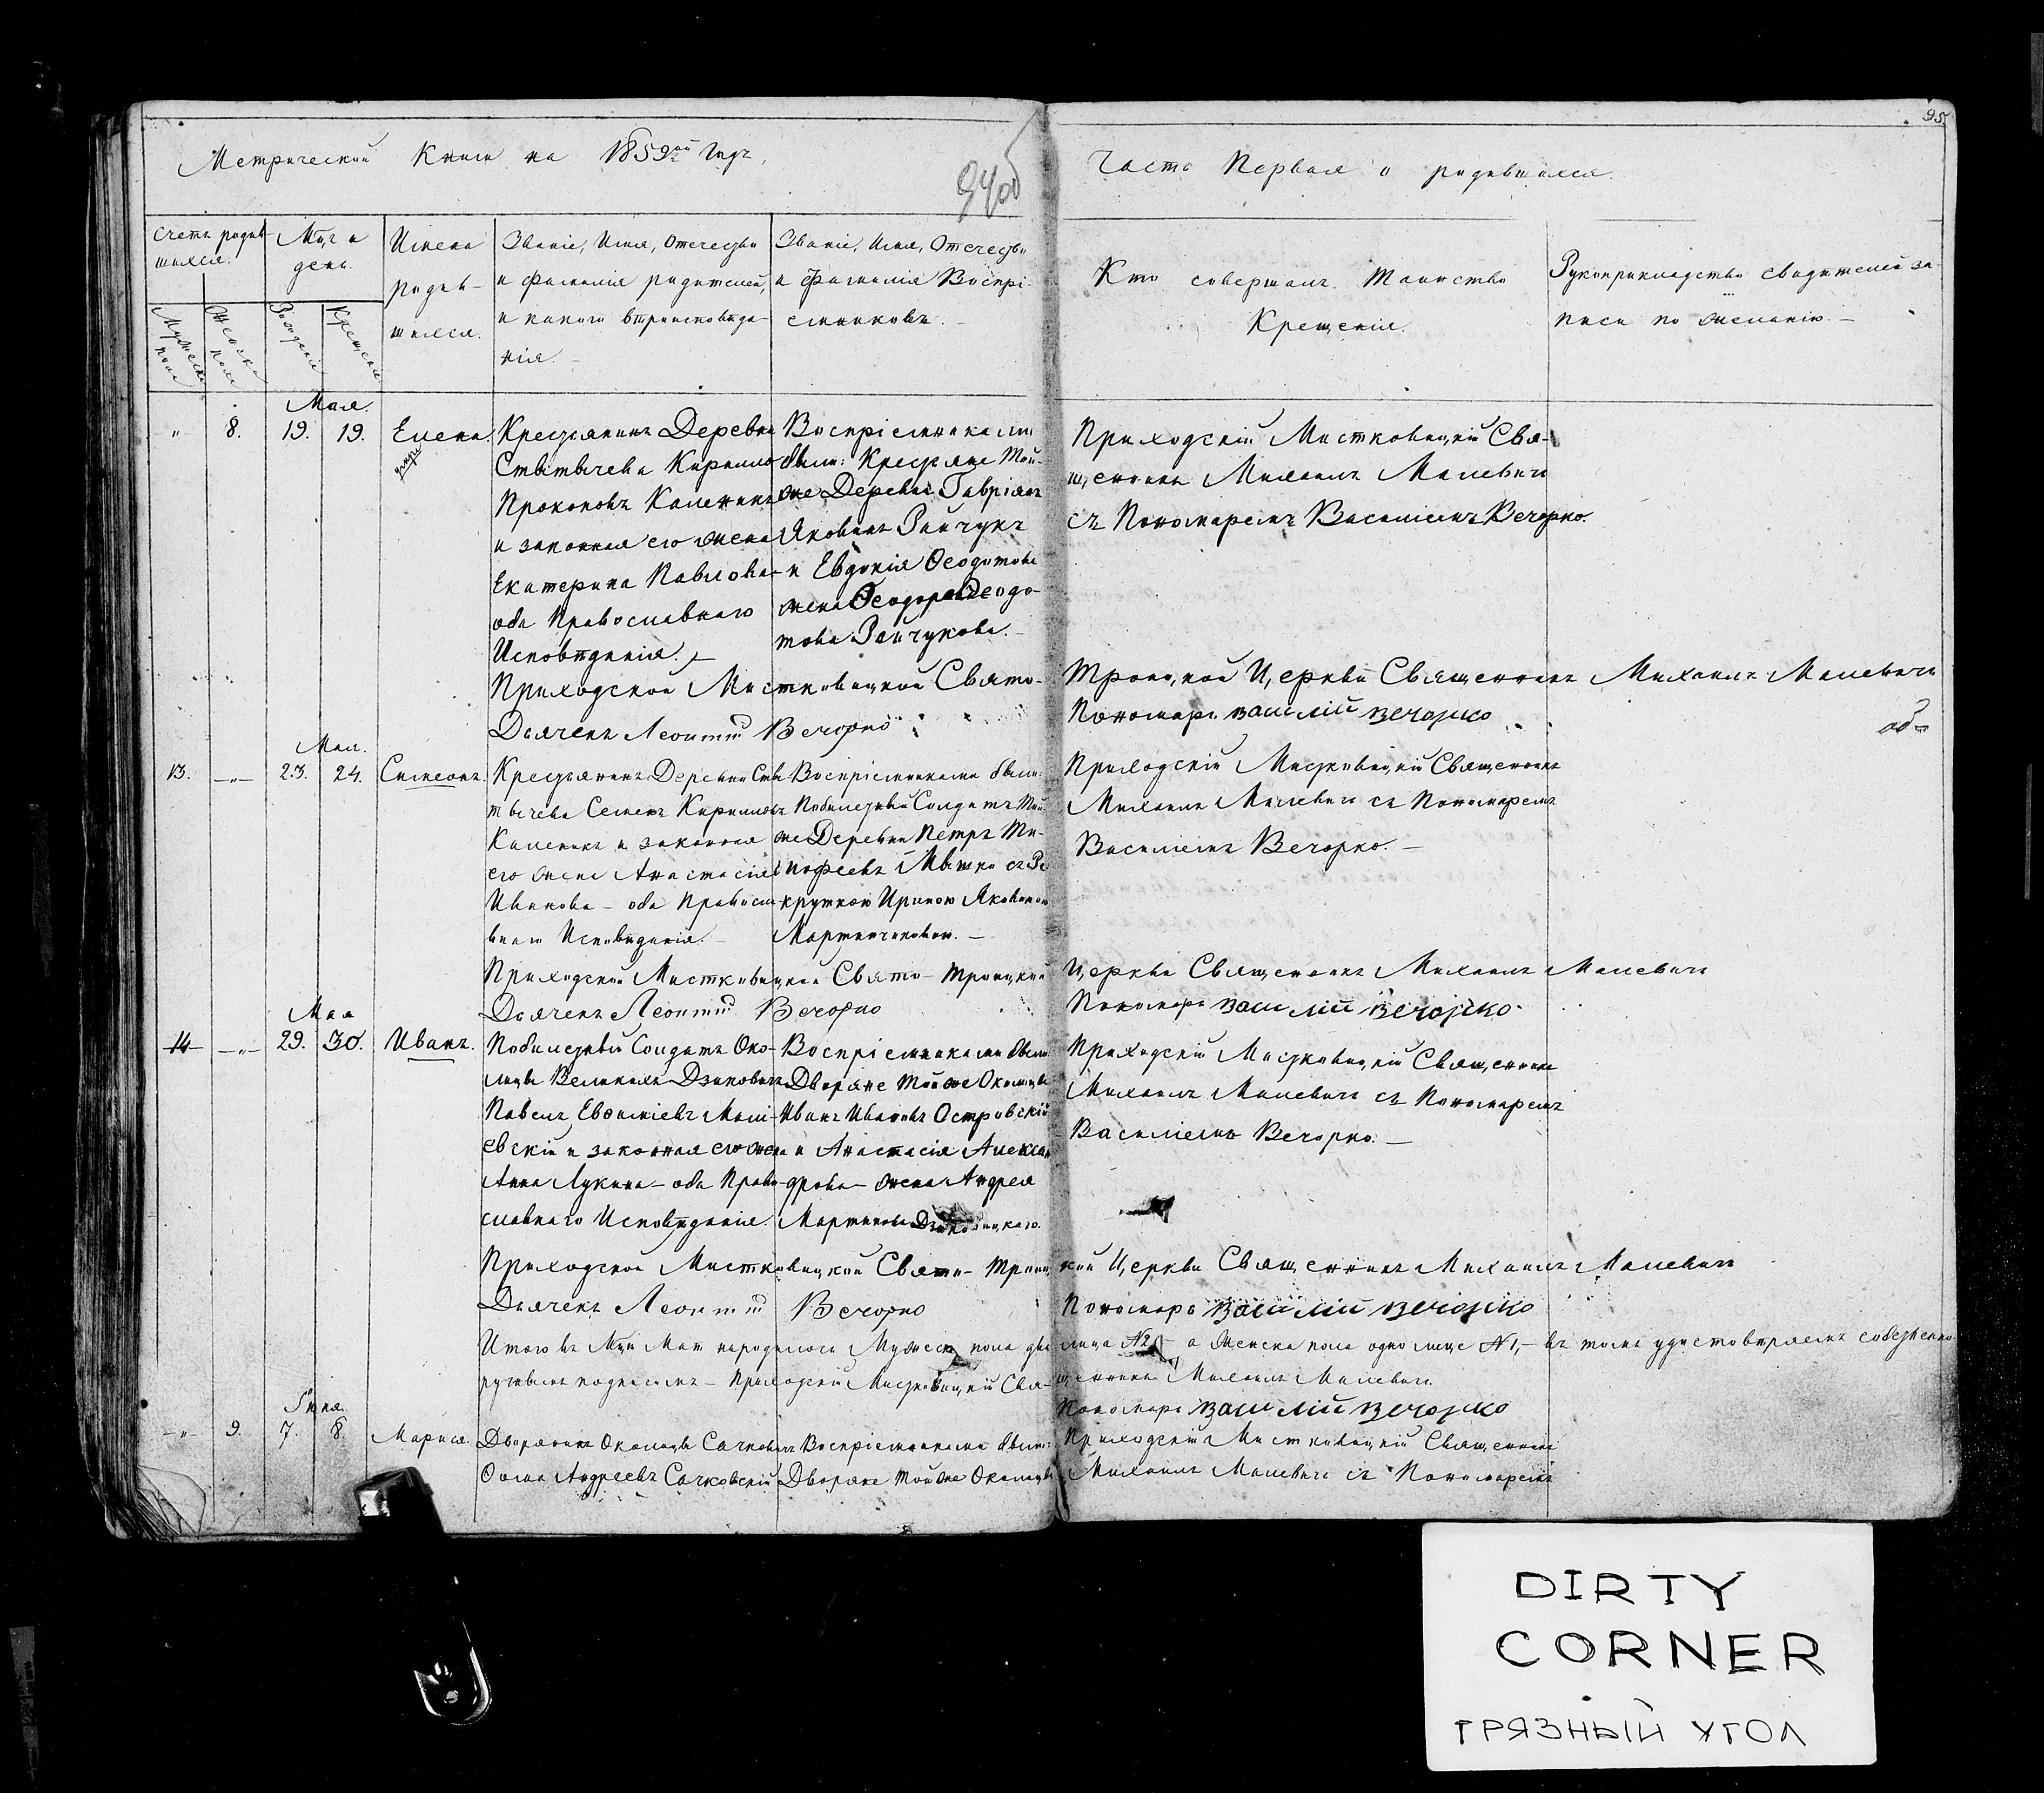 95.
Метрической Книги на 1859ый Годъ,
Часть Первая о родившихся.
94об
Счетъ родив-
шихся.
Мужеска
пола
Женска
пола
Мц,ъ и
день.
Рожденiя
Крещенiя
Имена
родив-
шихся.
Званіе, Имя, Отечество
и фамилія родителей,
и какого вѣроисповѣда-
нія. –
Званіе, Имя, Отечество
и фамилія Воспрі-
емниковъ. –
Кто совершалъ Таинство
Крещенія.
Рукоприкладство свидѣтелей за-
писи по желанію. –
Мая.
„ 8. 19. 19. Елена.
умре
Крестьянинъ Деревни
Стытычева Кирилло
Прокоповъ Каленикъ
и законная его жена
Екатерина Павлова –
оба Православнаго
Исповѣданія. –
Воспріемниками
были: Крестьяне Той-
же Деревни Гавріилъ
Яковлевъ Зайчукъ
и Евдокія Ѳеодотова
жена Ѳеодора Ѳеодо-
това Зайчукова. –
Приходскій Мистковицкій Свя-
щенникъ Михаилъ Малевичъ
съ Пономаремъ Василіемъ Вечорко.
Приходской Мистковицкой Свято-
Троицкой Церкви Священникъ Михаилъ Малевичъ
Дьячекъ Леонтій Вечорко
Пономарь Василій Вечорко
об
Мая.
13. –„– 23. 24. Симеонъ.
Крестьянинъ Деревни Сты-
тычева Семенъ Кирилловъ
Каленикъ и законная
его жена Анастасія
Иванова – оба Правосла-
внаго Исповѣданія. –
Воспріемниками были:
Побилетный Солдатъ Той-
же Деревни Петръ Ти-
мофеевъ Мышко съ Ре-
круткою Ириною Яковлевою
Мартынчиковою. –
Приходскій Мистковицкій Священникъ
Михаилъ Малевичъ съ Пономаремъ
Василіемъ Вечорко. –
Приходской Мистковицкой Свято-Троицкой
Церкви Священникъ Михаилъ Малевичъ
Дьячекъ Леонтій Вечорко
Пономарь Василій Вечорко.
Мая
14 –„– 29. 30. Иванъ.
Побилетный Солдатъ Око-
лицы Великихъ Дзиковичъ
Павелъ Евфиміевъ Мали-
евскій и законная его жена
Анна Лукина – оба Право-
славнаго Исповѣданія.
Воспріемниками были
Дворяне той же Околицы
Иванъ Ивановъ Островскій
и Анастасія Алексан-
дрова – жена Андрея
Мартинова Дзиковицкаго.
Приходскій Мистковицкій Священникъ
Михаилъ Малевичъ съ Пономаремъ
Василіемъ Вечорко. –
Приходской Мистковицкой Свято-Троиц-
кой Церкви Священникъ Михаилъ Малевичъ
Дьячекъ Леонтій Вечорко
Пономарь Василій Вечорко
Итого въ Мцѣ Маѣ народилось Мужеска пола два лица №2, а Женска пола одно лице №1, – въ томъ удостовѣряемъ собственно-
ручнымъ подписомъ – Приходскій Мистковицкій Свя-
щенникъ Михаилъ Малевичъ
Пономарь Василій Вечорко
Іюня.
–„– 9. 7. 8. Марися.
Дворянинъ Околицы Сачковичъ
Ѳома Андреевъ Сачковскій
Воспріемниками были:
Дворяне той же Околицы
Приходскій Мистковицкій Священникъ
Михаилъ Малевичъ съ Пономаремъ
DIRTY
CORNER
ГРЯЗНЫЙ УГОЛ